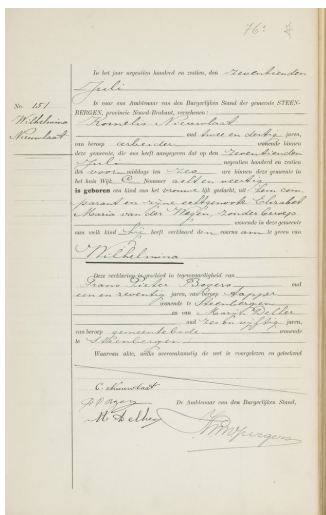 76
In het jaar negentien honderd en zestien, den zeventienden
Juli
is voor ons Ambtenaar van den Burgerlijken Stand der gemeente STEEN-
No. 151
BERGEN, provincie Noord-Brabant, verschenen:
Wilhelmina
Kornelis Nieuwlaat
Nieuwlaat
oud twee en dertig jaren,
van beroep arbeider wonende binnen
deze gemeente, die ons heeft aangegeven dat op den zeventienden
Juli negentien honderd en zestien
des voormiddags ten zes ure binnen deze gemeente in
het huis Wijk C Nommer acht en veertig
is geboren een kind van het vrouwelijk geslacht, uit hem com-
parant en zijne echtgenoote Elizabet
Maria van der Weyen, zonder beroep
wonende in deze gemeente
aan welk kind hij heeft verklaard den naam te geven van
Wilhelmina
Deze verklaring is geschied in tegenwoordigheid van
Frans Pieter Bogers oud
een en zeventig jaren, van beroep
wonende te Steenbergen
en van Marijn
oud zeven en vijftig jaren,
van beroep gemeentebode wonende
te Steenbergen
Waarvan akte, welke overeenkomstig de wet is voorgelezen en geteekend
C Nieuwlaat
De Ambtenaar van den Burgerlijken Stand,